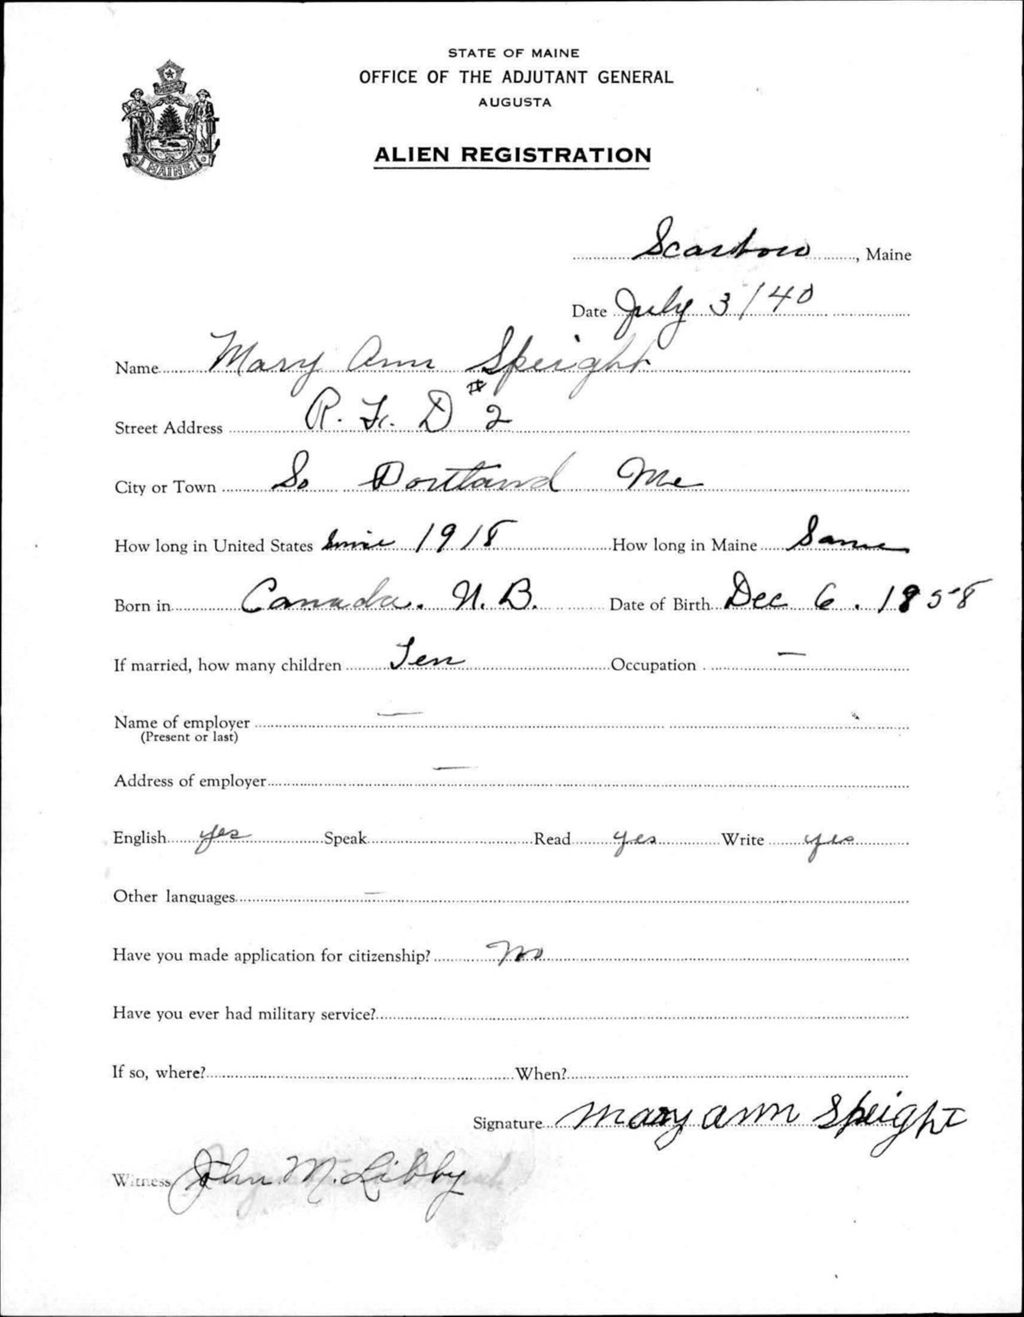 STATE OF MAINE
OFFICE OF THE ADJUTANT GENERAL
AUGUSTA
ALIEN REGISTRATION
MAINE
Scarboro, Maine
Date July 3/40
Name Mary Ann Speight
Street Address R. F. D #2
City or Town So Portland Me
How long in United States Since 1918 How long in Maine Same
Born in Canada. N. B. Date of Birth Dec 6. 1858
If married, how many children Ten Occupation —
Name of employer —
(Present or last)
Address of employer —
English yes Speak Read yes Write yes
Other languages —
Have you made application for citizenship? No
Have you ever had military service?
If so, where? When?
Signature Mary Ann Speight
Witness John M. Libby